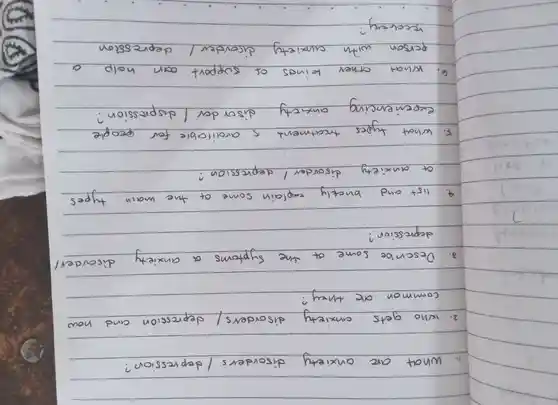 1. What are anxiety disorders / depression?
2. Who gets anxiety disorders / depression and how
common are they?
3 Describe some of the symptoms a anxiety disorder/
depression?
4. list and briefly explain some of the main types
of anxiety disorder / depression?
5. What types treatment s available for people
experiencing anxiety disorder / depression?
6. What other kinds of support can help a
person with anxiety disorder / depression
recovery?